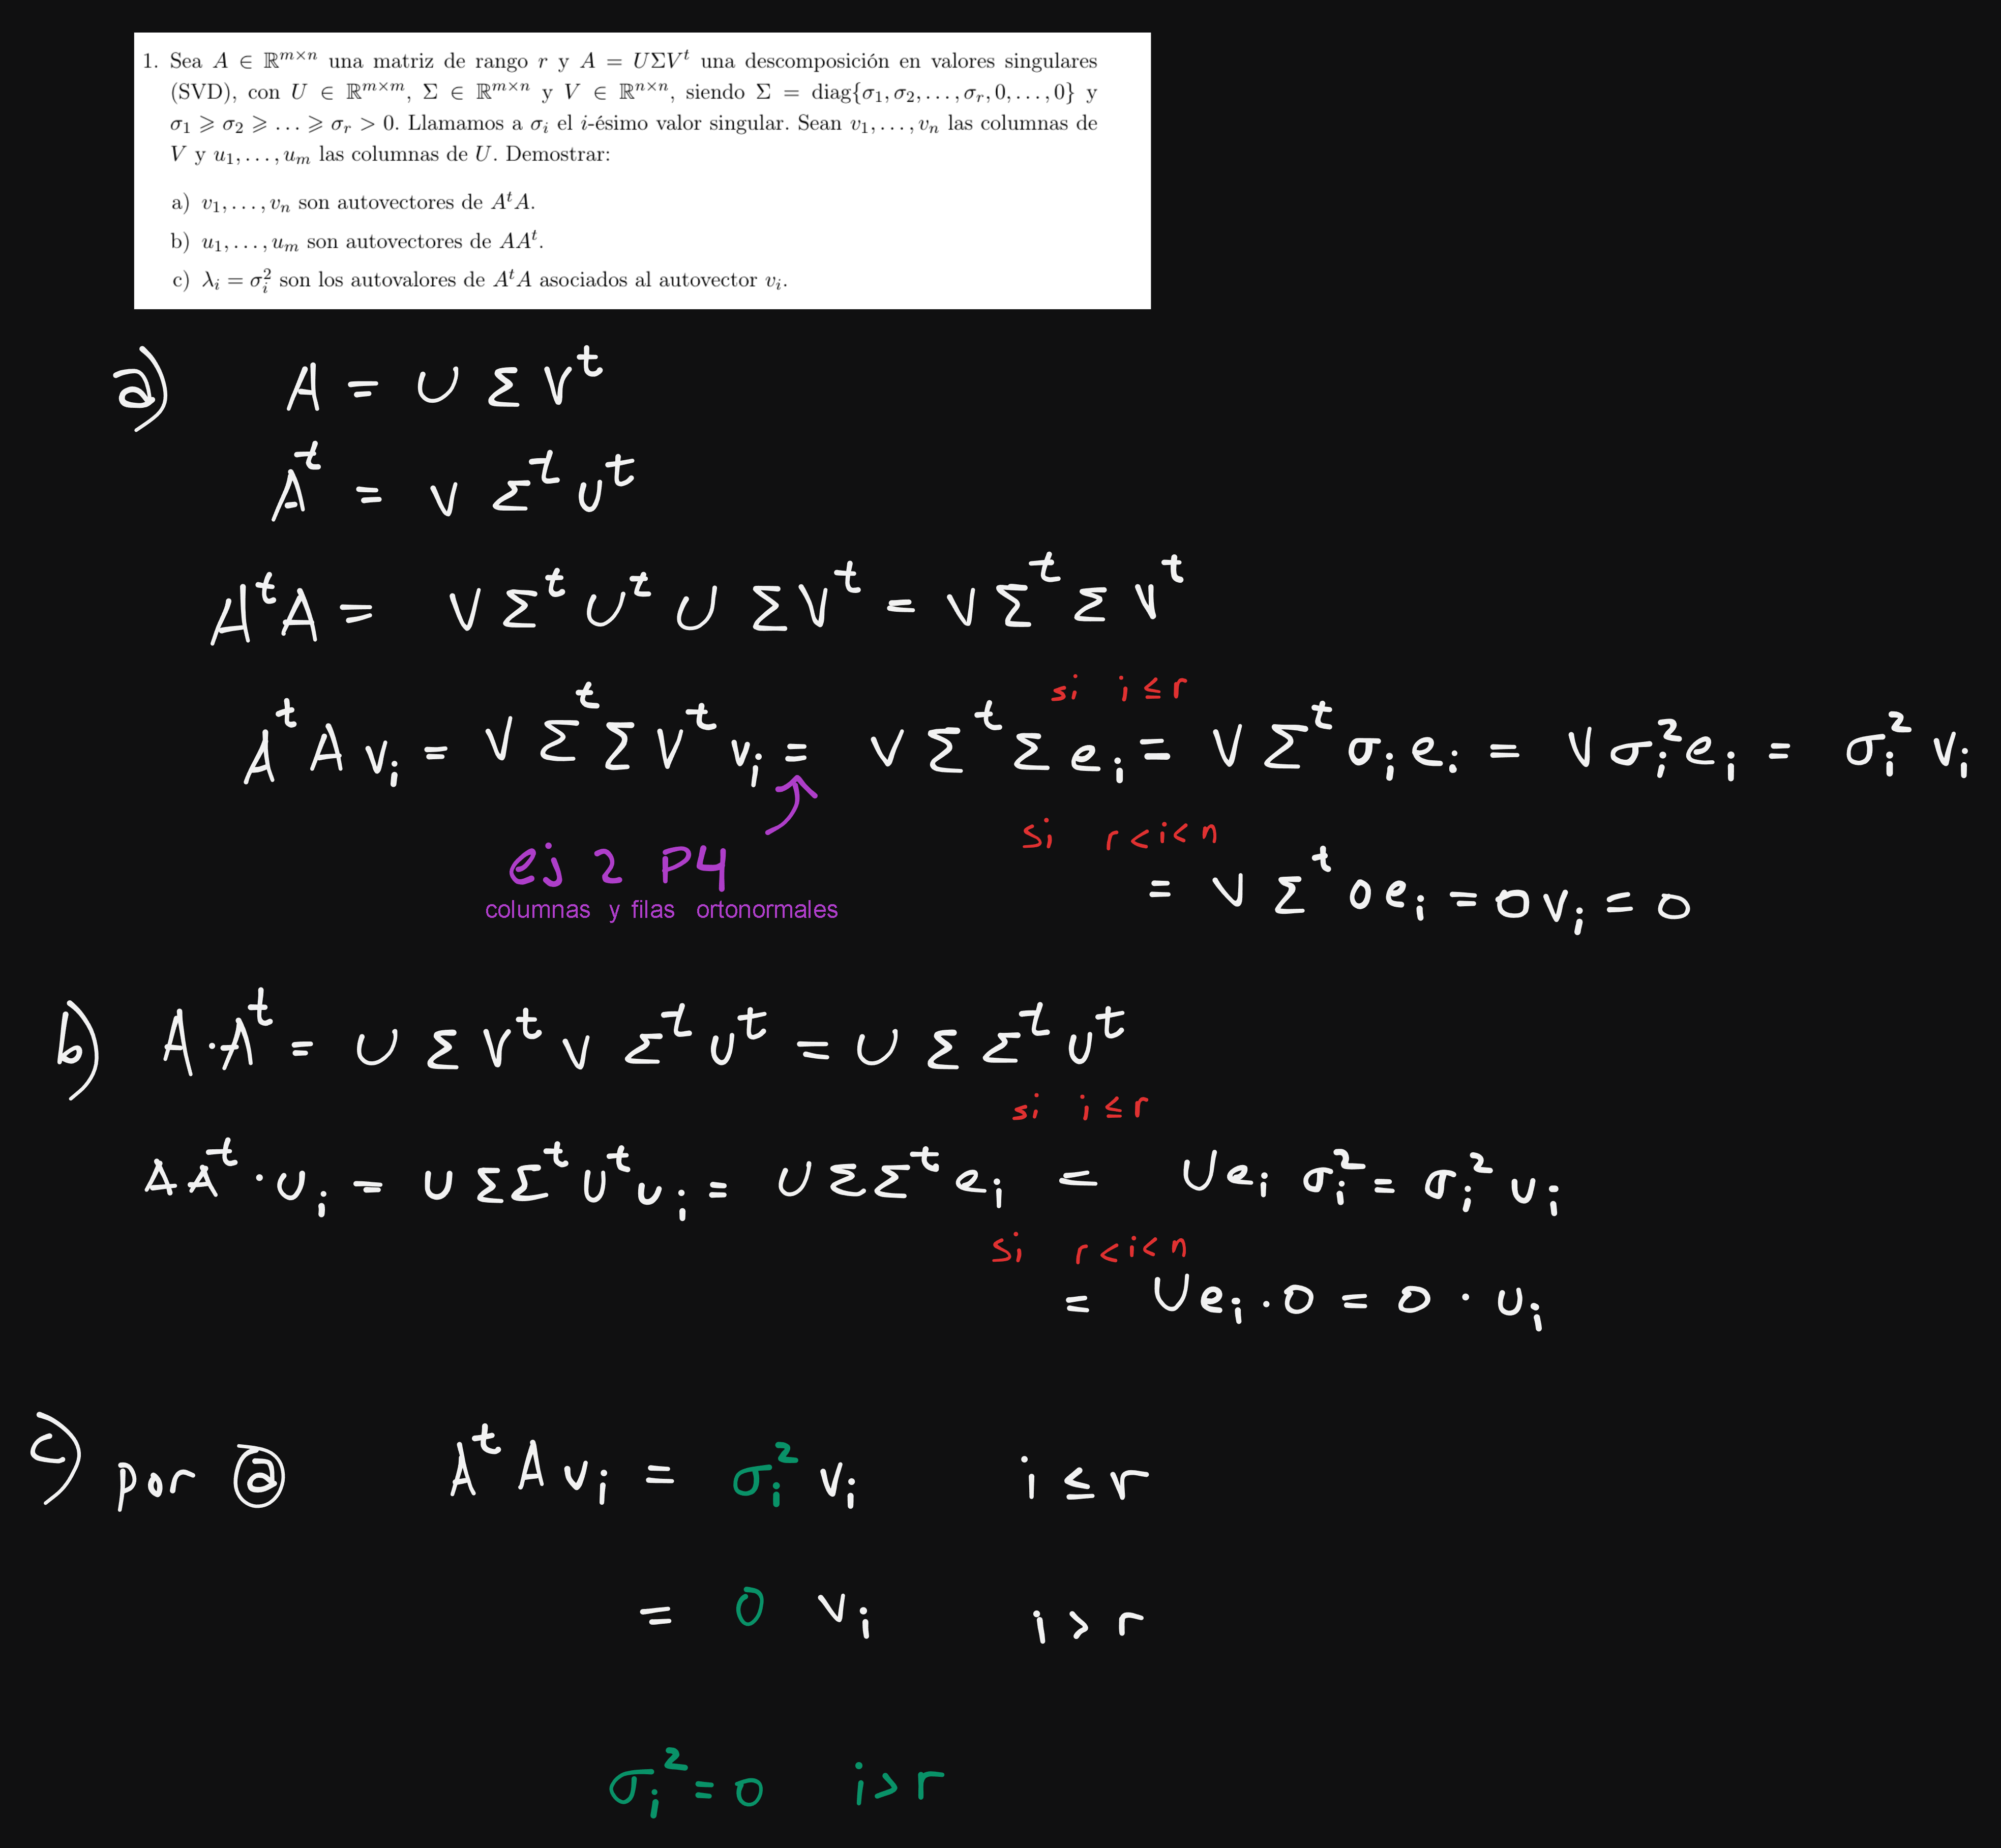 1. Sea A ∈ ℝ^{m×n} una matriz de rango r y A = UΣV^t una descomposición en valores singulares
(SVD), con U ∈ ℝ^{m×m}, Σ ∈ ℝ^{m×n} y V ∈ ℝ^{n×n}, siendo Σ = diag{σ_1, σ_2, . . . , σ_r, 0, . . . , 0} y
σ_1 ⩾ σ_2 ⩾ . . . ⩾ σ_r > 0. Llamamos a σ_i el i-ésimo valor singular. Sean v_1, . . . , v_n las columnas de
V y u_1, . . . , u_m las columnas de U. Demostrar:
a) v_1, . . . , v_n son autovectores de A^tA.
b) u_1, . . . , u_m son autovectores de AA^t.
c) λ_i = σ_i^2 son los autovalores de A^tA asociados al autovector v_i.
a) A = U Σ V^t
A^t = V Σ^t U^t
A^t A = V Σ^t U^t U Σ V^t = V Σ^t Σ V^t
si i ≤ r
A^t A v_i = V Σ^t Σ V^t v_i = V Σ^t Σ e_i = V Σ^t σ_i e_i = V σ_i^2 e_i = σ_i^2 v_i
si r < i < n
ej 2 P4
columnas y filas ortonormales
= V Σ^t 0 e_i = 0 v_i = 0
b) A · A^t = U Σ V^t V Σ^t U^t = U Σ Σ^t U^t
si i ≤ r
A A^t · u_i = U Σ Σ^t U^t u_i = U Σ Σ^t e_i = U e_i σ_i^2 = σ_i^2 u_i
si r < i < n
= U e_i · 0 = 0 · u_i
c) por ⓐ A^t A v_i = σ_i^2 v_i i ≤ r
= 0 v_i i > r
σ_i^2 = 0 i > r